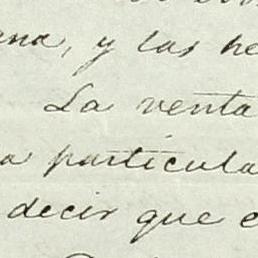 ana, y las he
La venta
a particula
decir que e